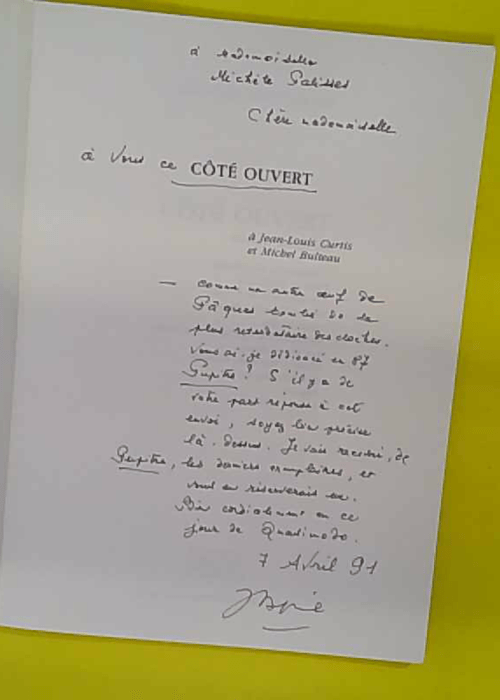 à Mademoiselle
Michèle Patisses
Chère mademoiselle
à vous ce CÔTÉ OUVERT
à Jean-Louis Curtis
et Michel Bulteau
— comme un autre œuf de
Pâques tombé de la
plus retardataire des cloches.
Vous ai-je dédicacé en 87
Pupitre ? S'il y a de
votre part réponse à cet
envoi, soyez bien précise
là-dessus. Je vais recevoir, de
Pupitre, les derniers exemplaires, et
vous en réserverais un.
Bien cordialement en ce
jour de Quasimodo.
7 Avril 91